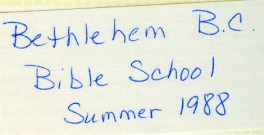 Bethlehem B.C.
Bible School
Summer 1988